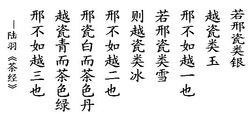 若邢瓷类银
越瓷类玉
邢不如越一也
若邢瓷类雪
则越瓷类冰
邢不如越二也
邢瓷白而茶色丹
越瓷青而茶色绿
邢不如越三也
—陆羽《茶经》